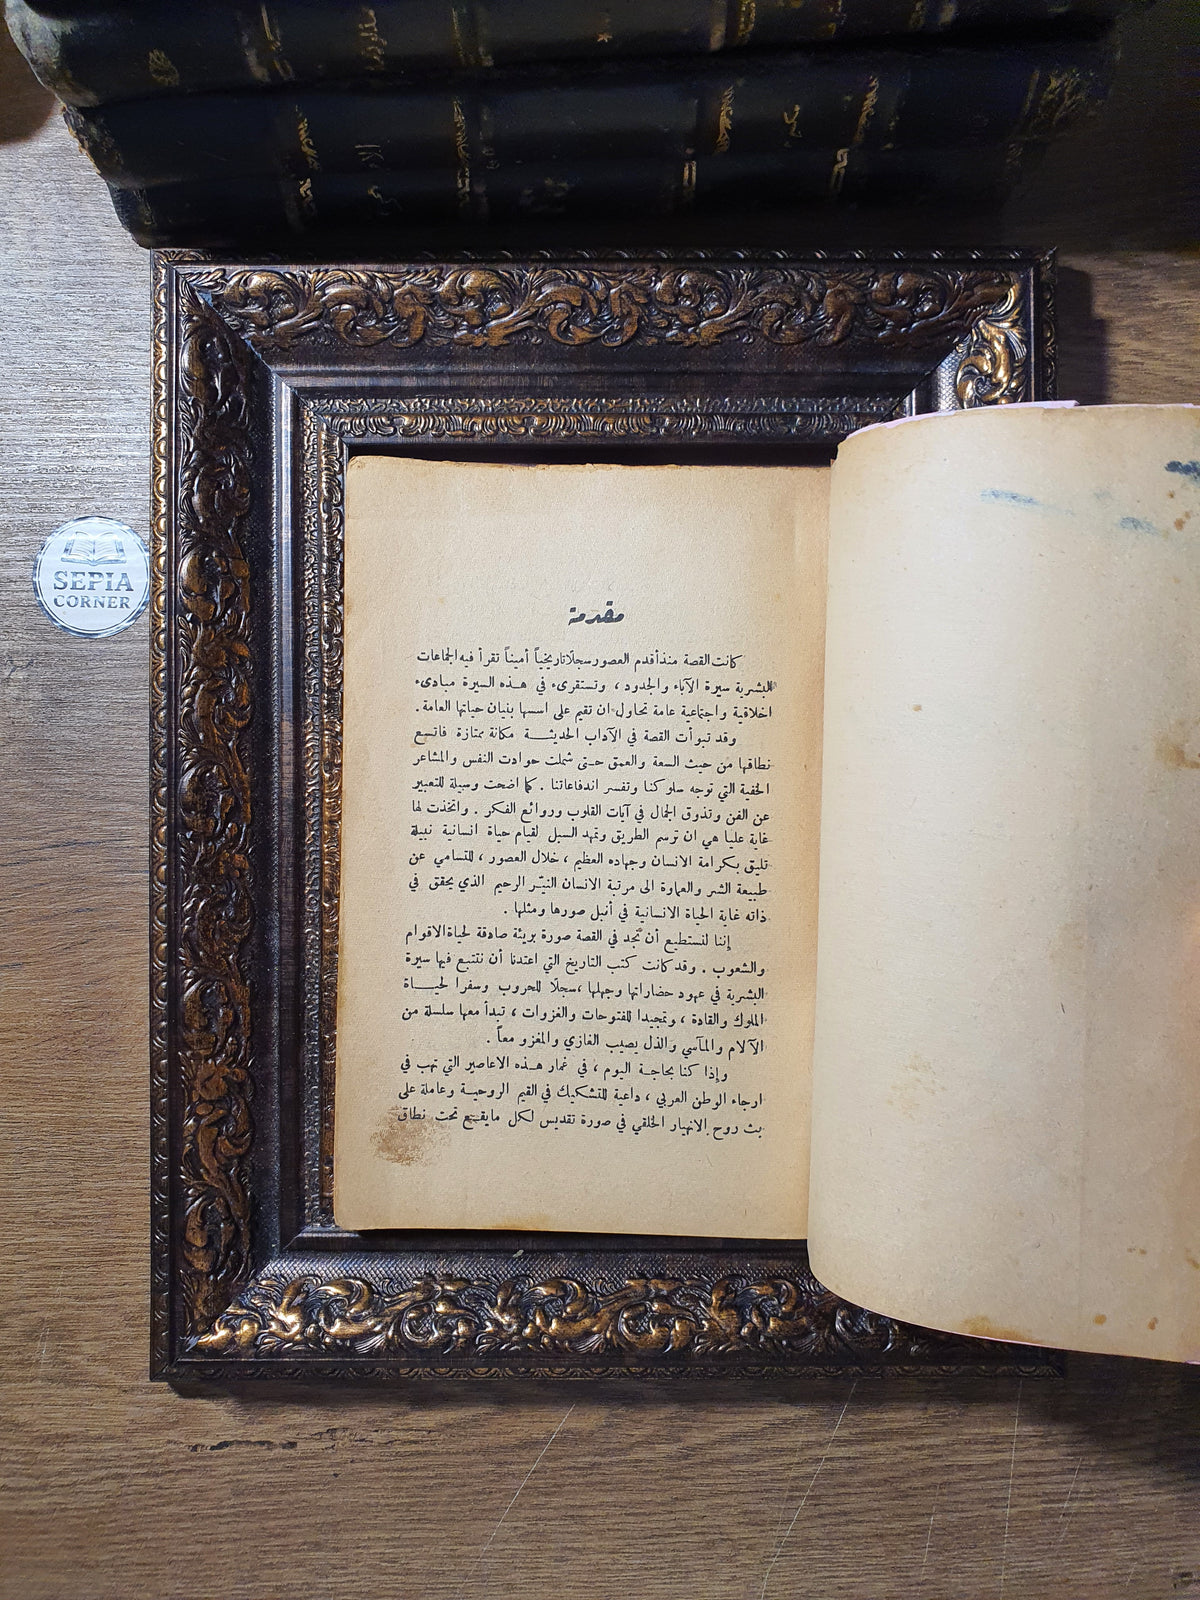 SEPIA
CORNER
مقدمة
كانت القصة منذ أقدم العصور سجلا تاريخياً أميناً تقرأ فيه الجماعات
البشرية سيرة الآباء والجدود ، وتستقرىء في هـذه السيرة مبادىء
اخلاقية واجتماعية عامة تحاول ان تقيم على اسسها بنيان حياتها العامة .
وقد تبوأت القصة في الآداب الحديثـــة مكانة ممتازة فاتسع
نطاقها من حيث السعة والعمق حـتى شملت حوادت النفس والمشاعر
الخفية التي توجه سلوكنا وتفسر اندفاعاتنا . كما اضحت وسيلة للتعبير
عن الفن وتذوق الجمال في آيات القلوب وروائع الفكر . واتخذت لها
غاية عليا هي ان ترسم الطريق وتمهد السبل لقيام حياة انسانية نبيلة
تليق بكرامة الانسان وجهاده العظيم ، خلال العصور ، للتسامي عن
طبيعة الشر والعماوة الى مرتبة الانسان النيّر الرحيم الذي يحقق في
ذاته غاية الحياة الانسانية في أنبل صورها ومثلها .
إننا لنستطيع أن نجد في القصة صورة بريئة صادقة لحياة الاقوام
والشعوب . وقد كانت كتب التاريخ التي اعتدنا أن نتتبع فيها سيرة
البشرية في عهود حضاراتها وجهلها ،سجلا للحروب وسفرا لحيـــاة
الملوك والقادة ، وتمجيدا للفتوحات والغزوات ، تبدأ معها سلسلة من
الآلام والمآسي والذل يصيب الغازي والمغزو معاً .
وإذا كنا بحاجـة اليوم ، في غمار هـذه الاعاصير التي تهب في
ارجاء الوطن العربي ، داعية للتشكيك في القيم الروحيـة وعاملة على
بث روح الانهيار الخلقي في صورة تقديس لكل ما يقـع تحت نطاق